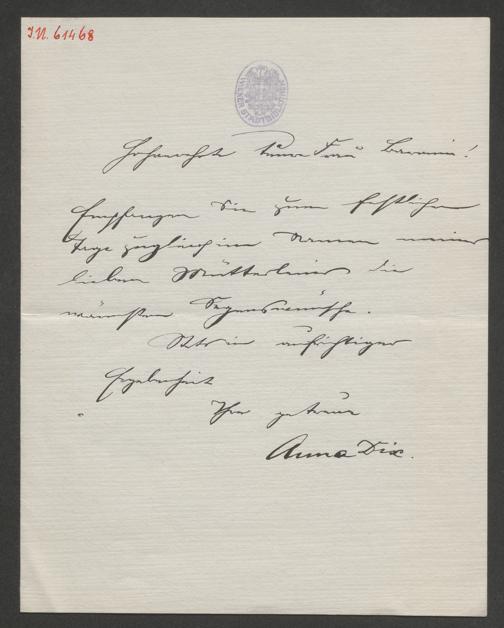 J.N. 61468
WIENER STADTBIBLIOTHEK
Hochverehrte teure Frau Baronin!
Empfangen Sie zum festlichen
Tage zugleich im Namen meines
lieben Mütterleins die
wärmsten Segenswünsche.
Stets in aufrichtiger
Ergebenheit
Ihre getreue
Anna Dix.